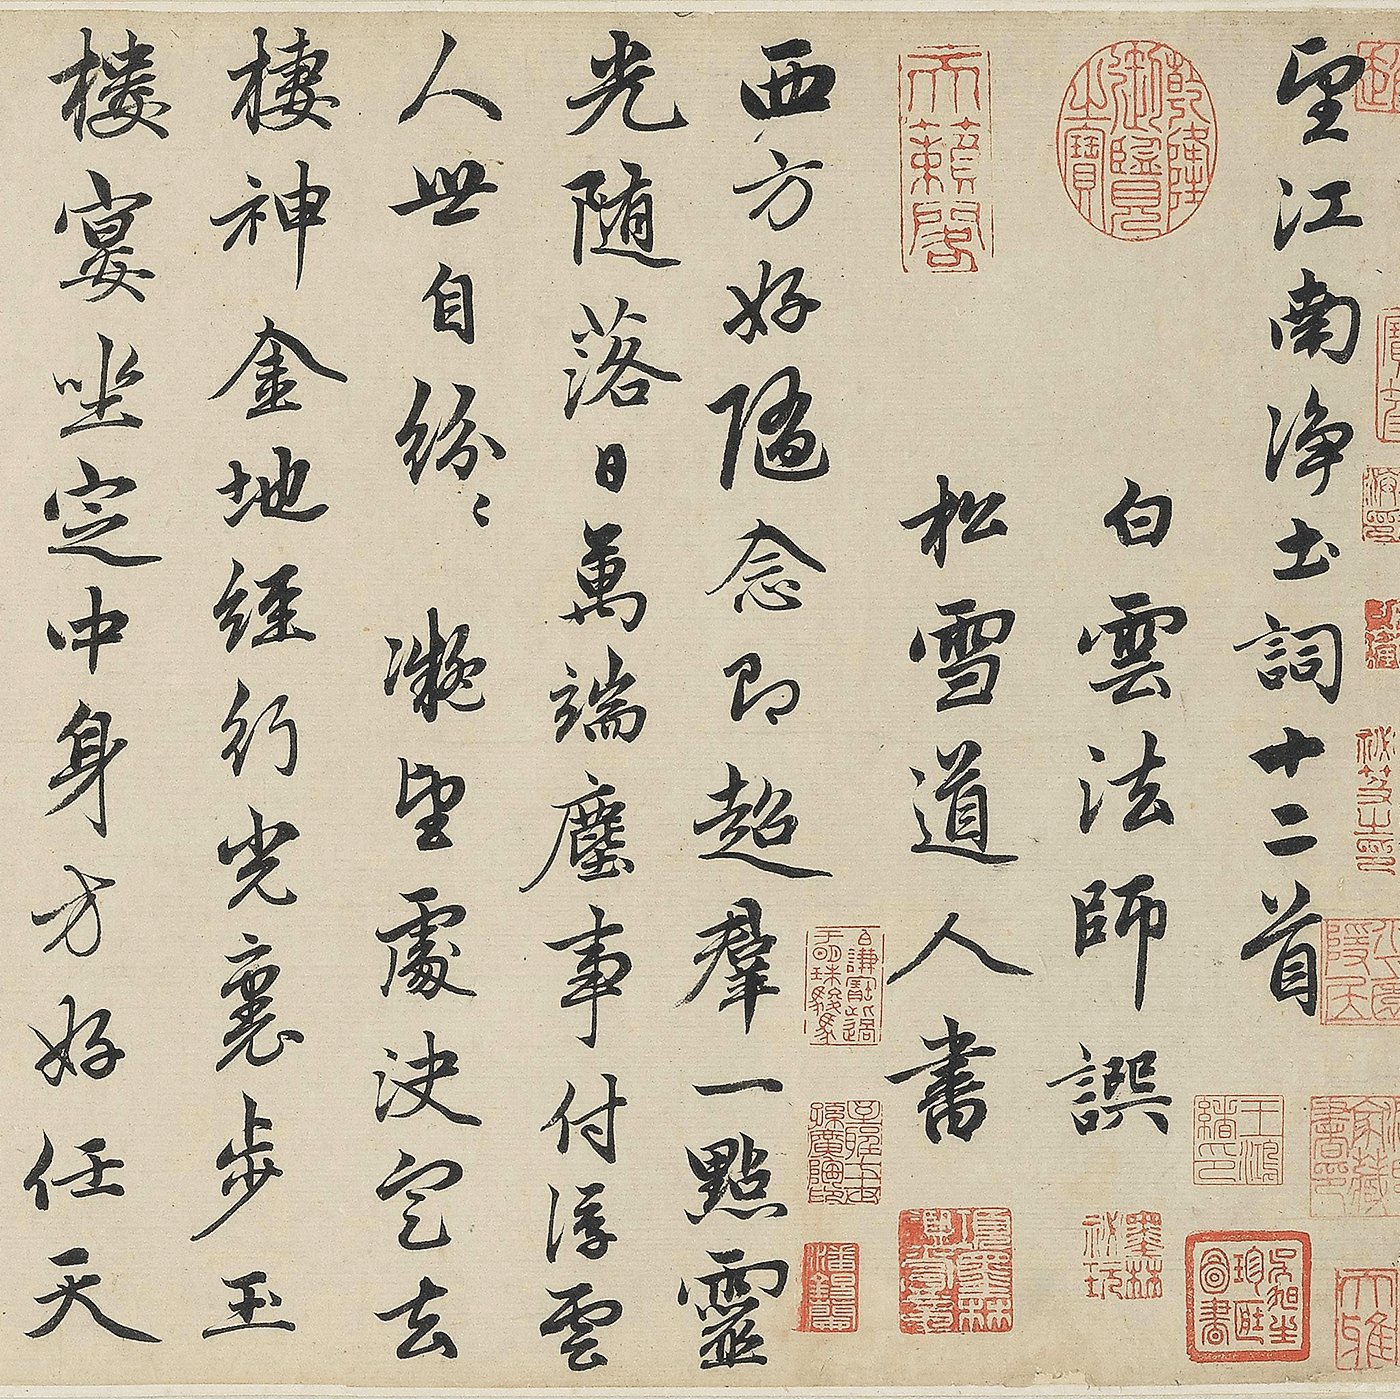 望江南淨土詞十二首
白雲法師譔
松雪道人書
西方好隨念即超羣一點靈
光隨落日萬端塵事付浮雲
人世自紛〻 凝望處決定去
棲神金地經行光裏步玉
樓宴坐定中身方好任天
乾隆御覽之寶
天籟閣